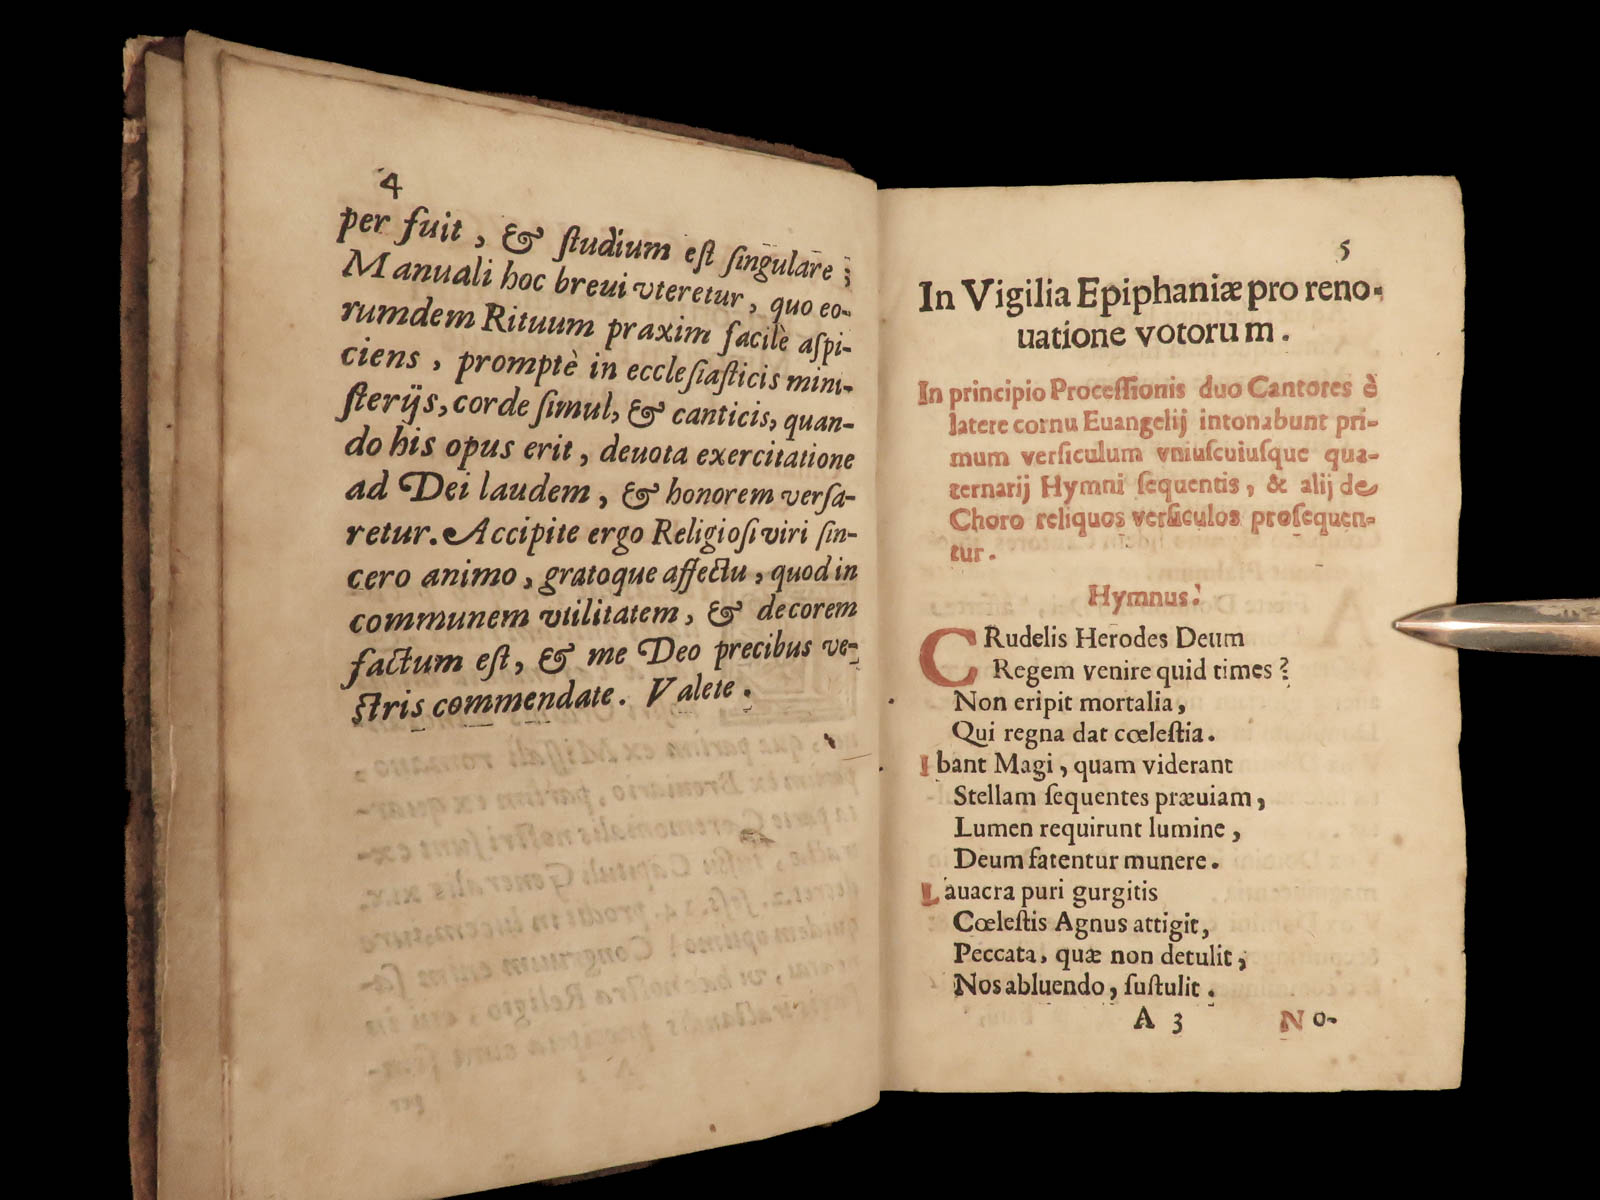 4
per fuit, & ſtudium eſt ſingulare;
Manuali hoc breui vteretur, quo eo-
rumdem Rituum praxim facilè aſpi-
ciens, promptè in eccleſiaſticis mini-
ſterijs, corde ſimul, & canticis, quan-
do his opus erit, deuota exercitatione
ad Dei laudem, & honorem verſa-
retur. Accipite ergo Religioſi viri ſin-
cero animo, gratoque affectu, quod in
communem vtilitatem, & decorem
factum eſt, & me Deo precibus ve-
ſtris commendate. Valete.
5
In Vigilia Epiphaniæ pro reno-
uatione votorum.
In principio Proceſſionis duo Cantores è
latere cornu Euangelij intonabunt pri-
mum verſiculum vniuſcuiuſque qua-
ternarij Hymni ſequentis, & alij de
Choro reliquos verſiculos proſequen-
tur.
Hymnus.
CRudelis Herodes Deum
Regem venire quid times?
Non eripit mortalia,
Qui regna dat cœleſtia.
Ibant Magi, quam viderant
Stellam ſequentes præuiam,
Lumen requirunt lumine,
Deum fatentur munere.
Lauacra puri gurgitis
Cœleſtis Agnus attigit,
Peccata, quæ non detulit,
Nos abluendo, ſuſtulit.
A 3 No-